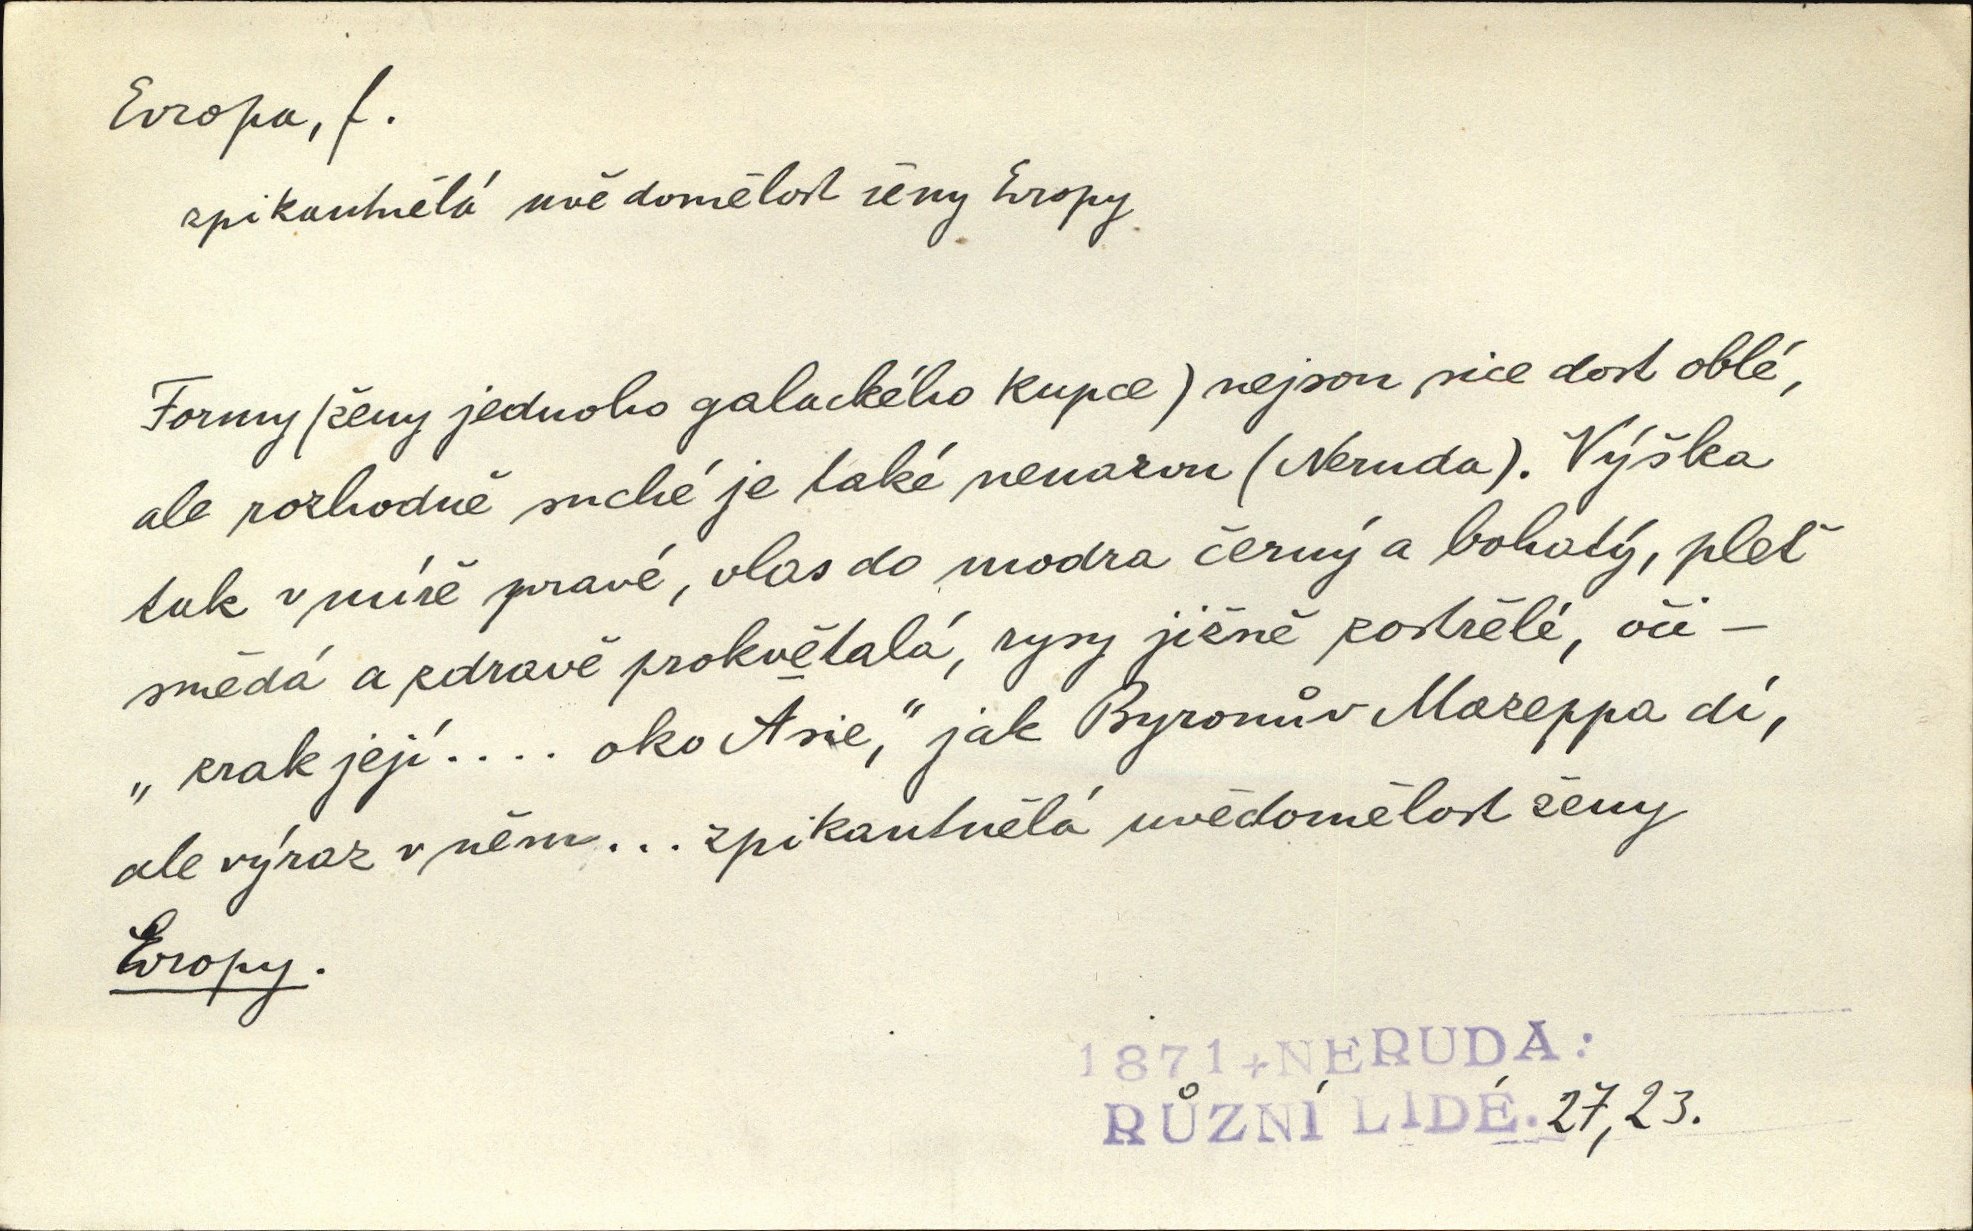 Evropa, f.
zpikantnělá uvědomělost ženy Evropy
Formy (ženy jednoho galackého kupce) nejsou sice dost oblé,
ale rozhodně suché je také nenazvu (Neruda). Výška
tak v míře pravé, vlas do modra černý a bohatý, pleť
smědá a zdravě prokvětalá, rysy jižně zostřelé, oči –
„zrak její .... oko Asie,“ jak Byronův Mazeppa dí,
ale výraz v něm ... zpikantnělá uvědomělost ženy
Evropy.
1871+NERUDA:
RŮZNÍ LIDÉ. 27, 23.